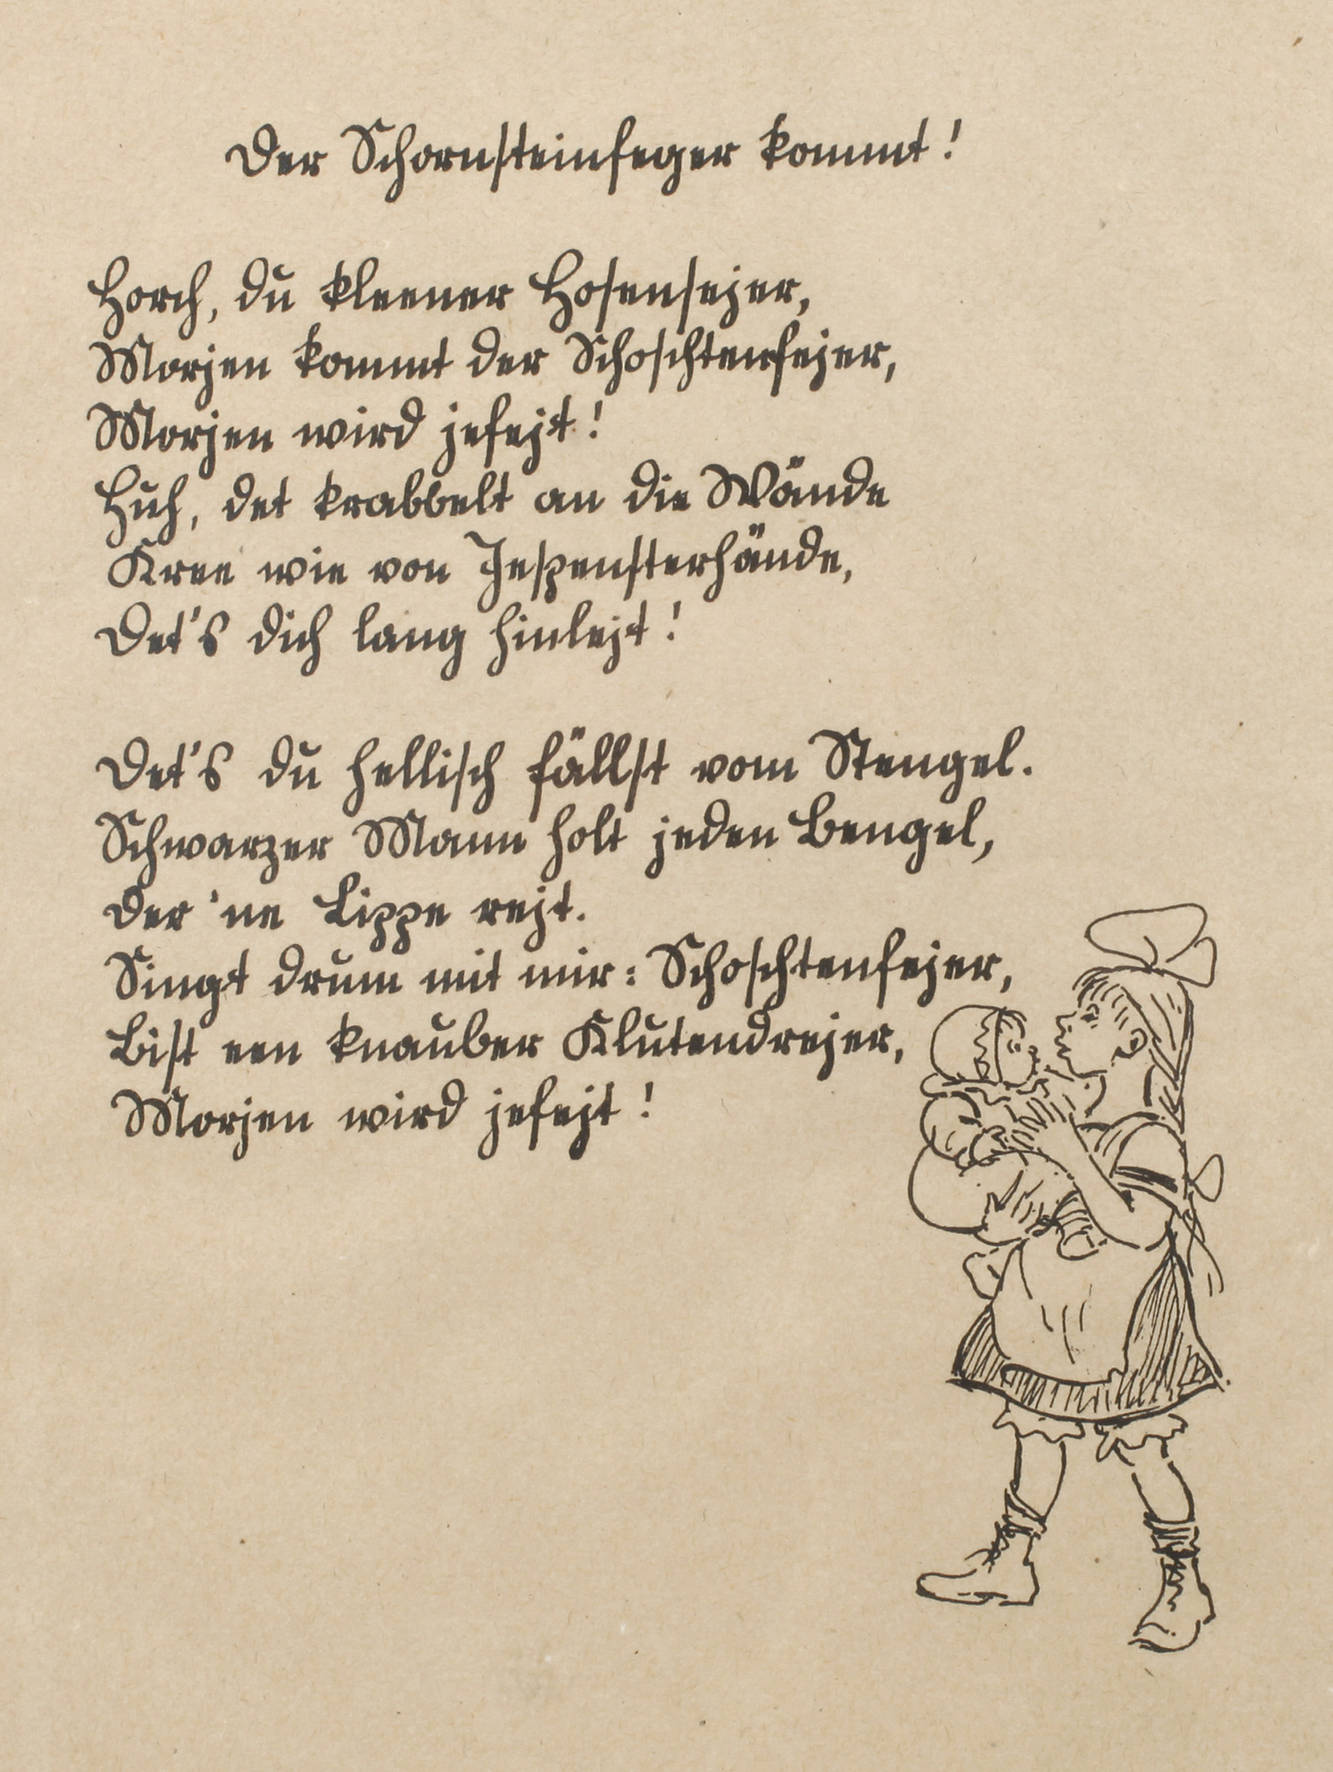 Der Schornsteinfeger kommt!
Horch, du kleener Hosensejer,
Morjen kommt der Schoschtenfejer,
Morjen wird jefejt!
Huh, det krabbelt an die Wände
Kree wie von Jespensterhände,
Det's dich lang hinlejt!
Det's du hellisch fällst vom Stengel.
Schwarzer Mann holt jeden Bengel,
Der 'ne Lippe rejt.
Singt drum mit mir: Schoschtenfejer,
Bist een knauber Klutendrejer,
Morjen wird jefejt!